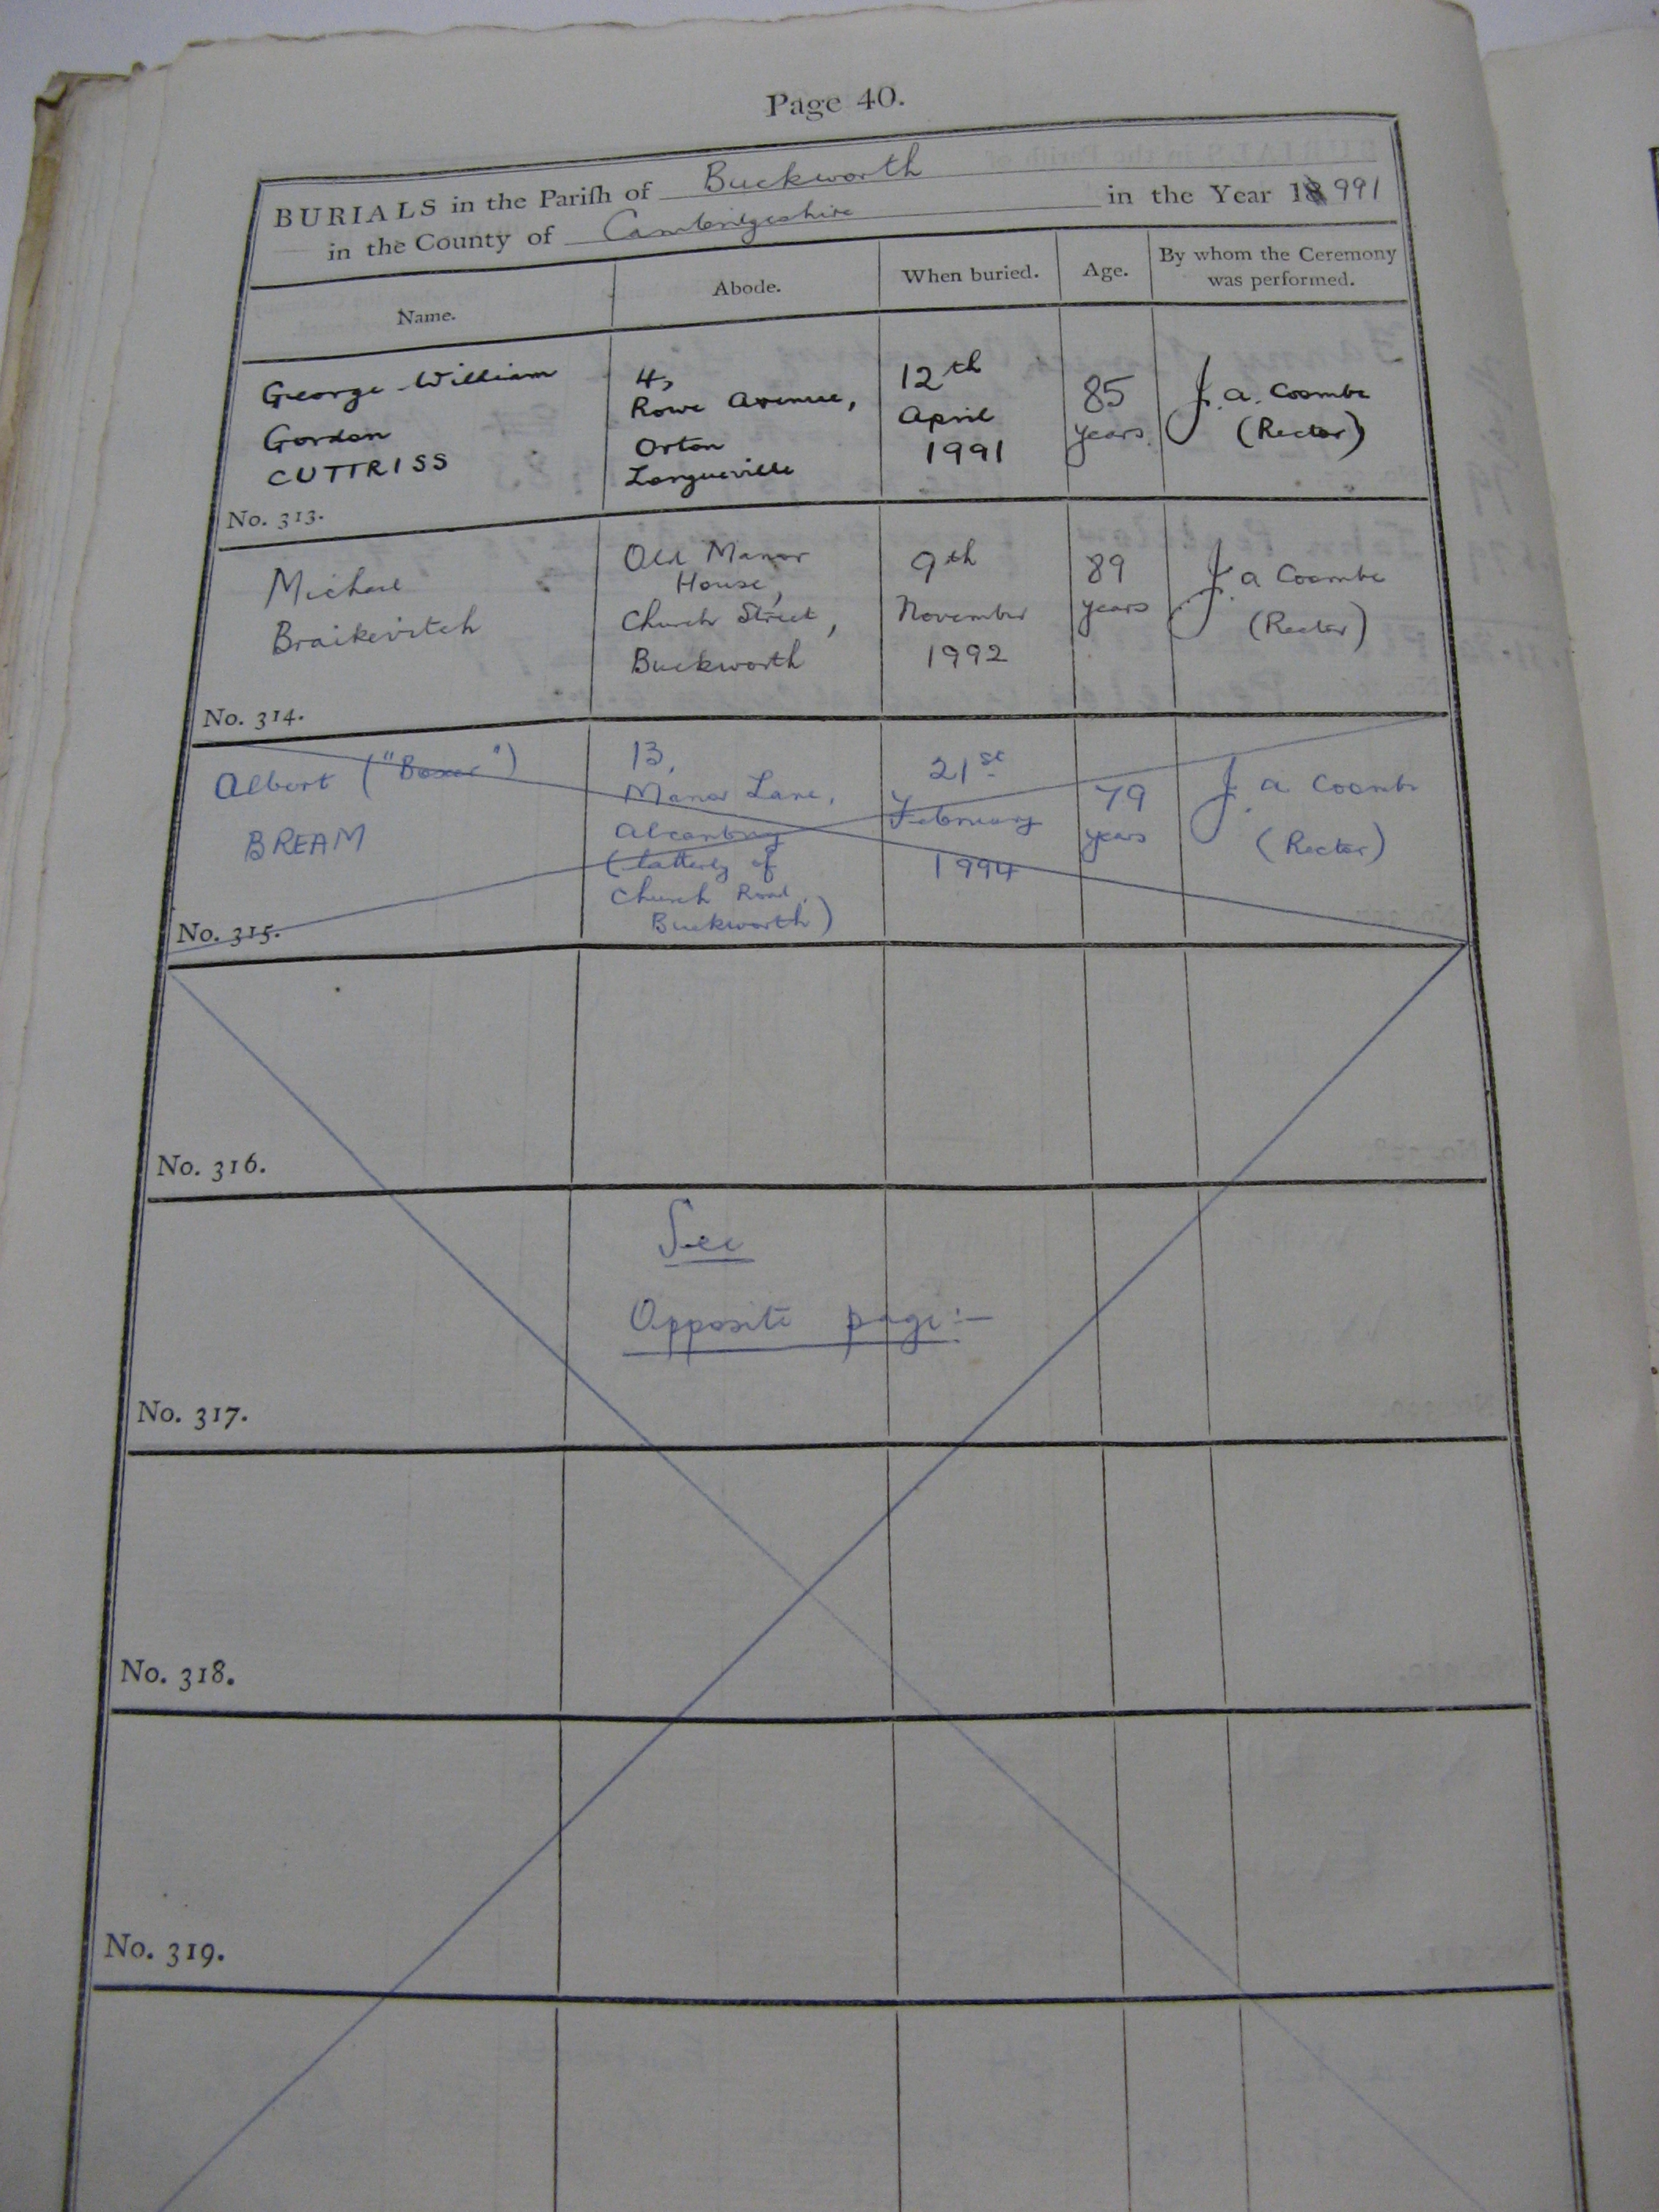 Page 40.
BURIALS in the Pariſh of Buckworth in the Year 18991
in the County of Cambridgeshire
Name. Abode. When buried. Age. By whom the Ceremony was performed.
George William
Gordon
CUTTRISS
4,
Rowe Avenue,
Orton
Longueville
12th
April
1991
85
years.
J. A. Coombe
(Rector)
No. 313.
Michael
Braikevitch
Old Manor
House,
Church Street,
Buckworth
9th
November
1992
89
years
J. A Coombe
(Rector)
No. 314.
Albert ("Boxer")
BREAM
13,
Manor Lane,
Alconbury
(latterly of
Church Road,
Buckworth)
21st
February
1994
79
years
J. A Coombe
(Rector)
No. 315.
No. 316.
See
Opposite page:-
No. 317.
No. 318.
No. 319.